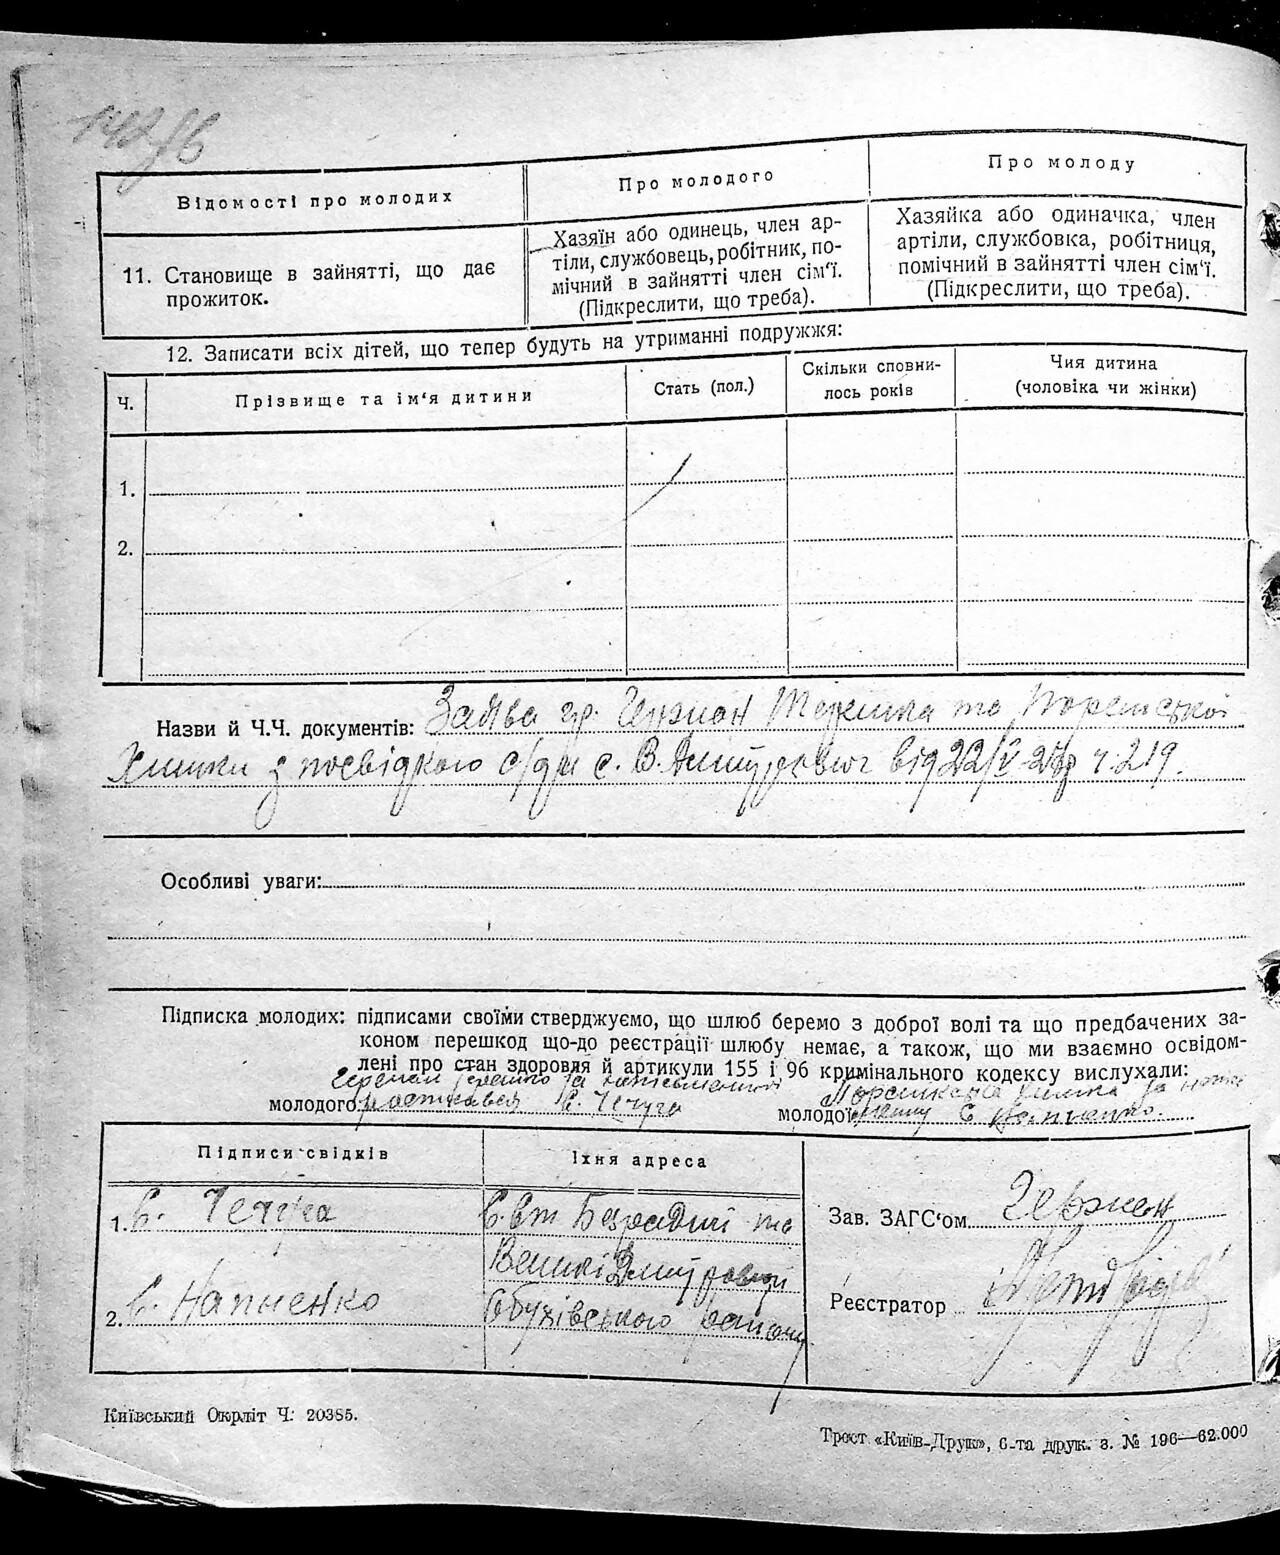 Відомості про молодих
Про молодого
Про молоду
11. Становище в зайнятті, що дає
прожиток.
Хазяїн або одинець, член ар-
тіли, службовець, робітник, по-
мічний в зайнятті член сім'ї.
(Підкреслити, що треба).
Хазяйка або одиначка, член
артіли, службовка, робітниця,
помічний в зайнятті член сім'ї.
(Підкреслити, що треба).
12. Записати всіх дітей, що тепер будуть на утриманні подружжя:
Ч.
Прізвище та ім'я дитини
Стать (пол.)
Скільки сповни-
лось років
Чия дитина
(чоловіка чи жінки)
1.
2.
Назви й Ч.Ч. документів: Заява гр. та
з посвідкою с/ради с. В. від 22/V ч. 219.
Особливі уваги:
Підписка молодих: підписами своїми стверджуємо, що шлюб беремо з доброї волі та що предбачених за-
коном перешкод що-до реєстрації шлюбу немає, а також, що ми взаємно освідом-
лені про стан здоровля й артикули 155 і 96 кримінального кодексу вислухали:
молодого
молодої
Підписи свідків
Їхня адреса
1. Є. Чечуга
с.вт Безрадичі та
Великі Дмитровичі
2. Є. Напненко
Обухівського району
Зав. ЗАГС'ом
Реєстратор
Київський Окрліт Ч: 20385.
Трест «Київ-Друк», 6-та друк. з. № 196—62.000